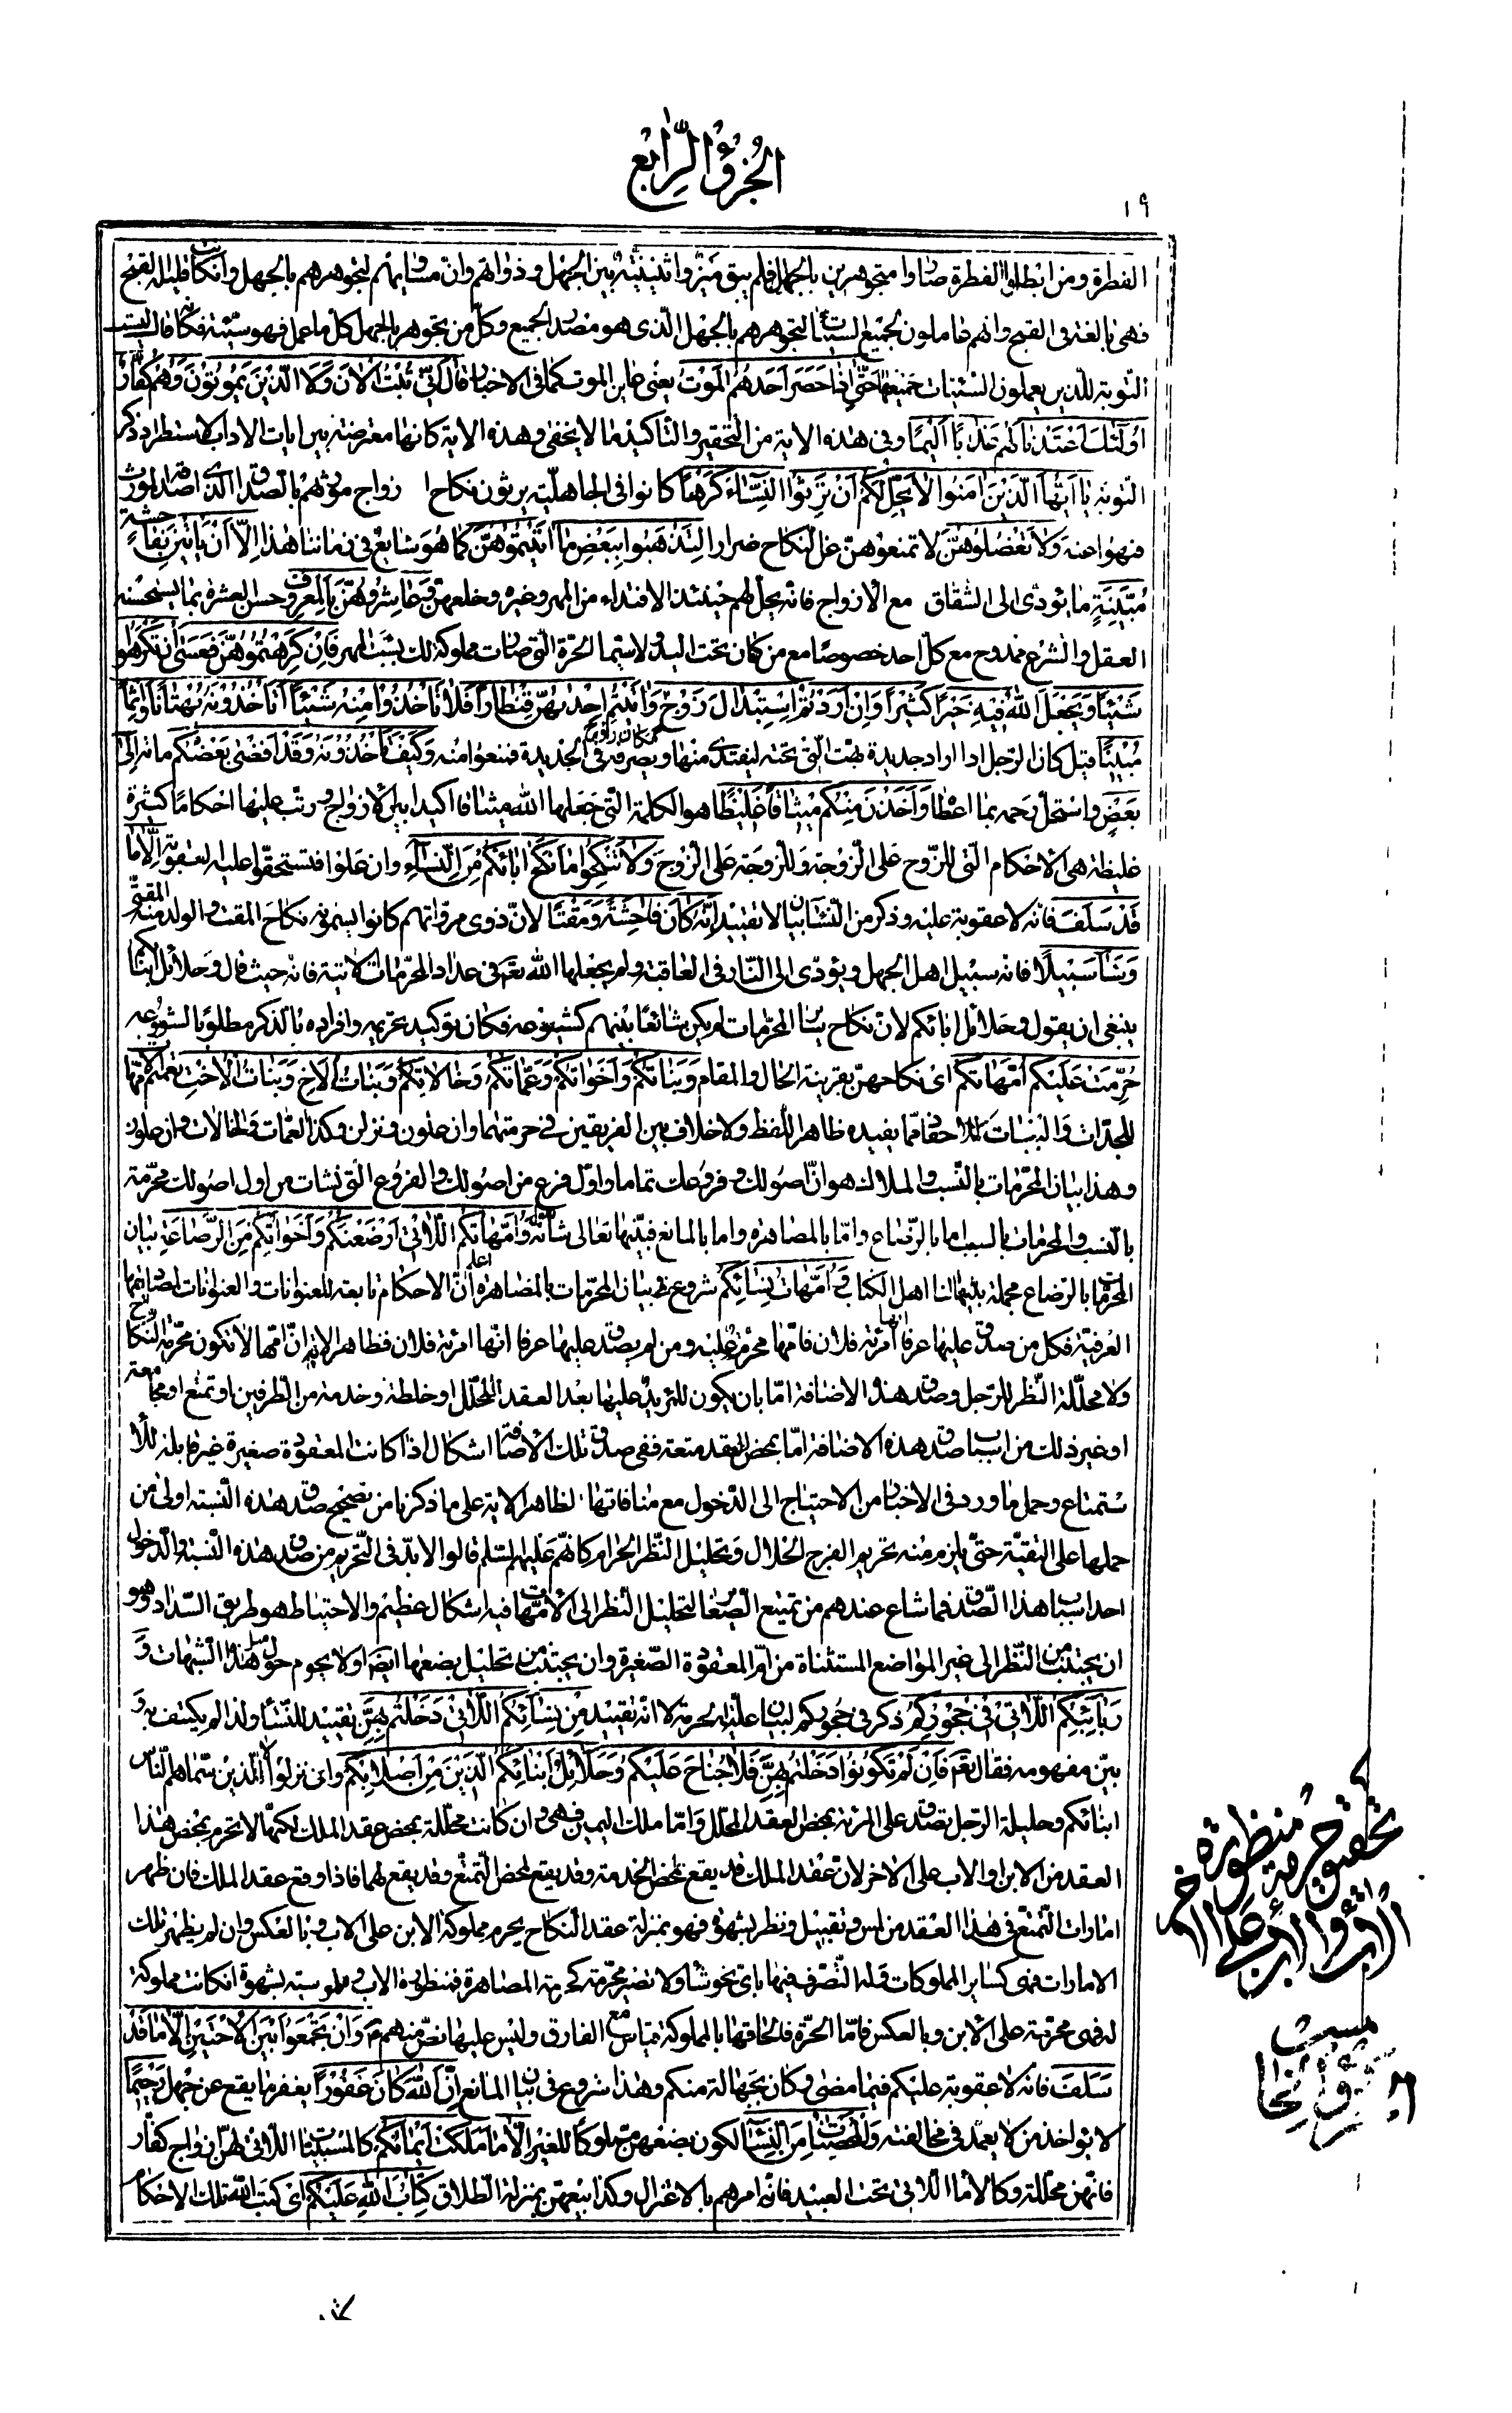 الجزؤ الرّابع
١٩
الفطرة ومن ابطلوا الفطرة صاروا متجوهرين بالجهل فلم يبق ميز واثنينيّة بين الجهل وذواتهم وانّ مساويهم لتجوهرهم بالجهل وان كانت قليلة القبح
فهى بالغة فى القبح وانهم عاملون لجميع السيّئات لتجوهرهم بالجهل الّذى هو مصدر الجميع وكلّ من تجوهر بالجهل كلّ ما عمل فهو سيّئة فكانه قال ليست
التّوبة للّذين يعملون السّيّئات جميعها حَتّى اِذا حَضَرَ اَحَدَهُمُ الْمَوْتُ يعنى عاين الموت كما فى الاخبار قالَ اِنّى تُبْتُ الْانَ وَلَا الَّذينَ يَمُوتُونَ وَهُمْ كُفّارٌ
اُولئِكَ اَعْتَدْنا لَهُمْ عَذاباً اَليماً وفى هذه الاية من التّحقير والتّاكيد ما لا يخفى وهذه الاية كانها معترضة بين ايات الاداب لاستطراد ذكر
التّوبة يا اَيُّهَا الَّذينَ امَنُوا لا يَحِلُّ لَكُمْ اَنْ تَرِثُوا النِّساءَ كَرْهاً كانوا فى الجاهليّة يرثون نكاح ا زواج مورّثهم بالصّداق الّذى اصدقه المورث
فنهوا عنه وَلا تَعْضُلُوهُنَّ لا تمنعوهنّ عن النّكاح ضرارا لِتَذْهَبُوا بِبَعْضِ ما اتَيْتُمُوهُنَّ كما هو شايع فى زماننا هذا اِلّا اَنْ يَاْتينَ بِفاحِشَةٍ
مُبَيِّنَةٍ ما يؤدى الى الشّقاق مع الازواج فانه يحلّ لهم حينئذ الافتداء من المهر وغيره وخلعهنّ وَعاشِرُوهُنَّ بِالْمَعْرُوفِ وحسن العشرة بما يستحسنه
العقل والشّرع ممدوح مع كلّ احد خصوصًا مع من كان تحت اليد ولا سيّما الحرّة الّتى صارت مملوكة لك بسبب المهر فَاِنْ كَرِهْتُمُوهُنَّ فَعَسى اَنْ تَكْرَهُوا
شَيْئاً وَيَجْعَلَ اللهُ فيهِ خَيْراً كَثيراً وَاِنْ اَرَدْتُمُ اسْتِبْدالَ زَوْجٍ مَكانَ زَوْجٍ وَاتَيْتُمْ اِحْديهُنَّ قِنْطاراً فَلا تَاْخُذُوا مِنْهُ شَيْئاً اَتَاْخُذُونَهُ بُهْتاناً وَاِثْماً
مُبيناً قيل كان الرّجل اذا اراد جديدة بهت الّتى تحته ليفتدى منها ويصرفه فى الجديدة فمنعوا منه وَكَيْفَ تَاْخُذُونَهُ وَقَدْ اَفْضى بَعْضُكُمْ اِلى
بَعْضٍ واستحلّ رحمه بما اعطا وَاَخَذْنَ مِنْكُمْ ميثاقاً غَليظاً هو الكلمة الّتى جعلها الله ميثاقا اكيدا بين الازواج ورتّب عليها احكاما كثيرة
غليظة هى الاحكام الّتى للزّوج على الزّوجة وللزوجة على الزّوج وَلا تَنْكِحُوا ما نَكَحَ اباؤُكُمْ مِنَ النِّساءِ وان علوا فتستحقّوا عليه العقوبة اِلّا ما
قَدْ سَلَفَ فانه لا عقوبة عليه وذكر من النّساء بيان لا تقييد اِنَّهُ كانَ فاحِشَةً وَمَقْتاً لانّ ذوى مروّاتهم كانوا يسمونه نكاح المقت والولد منه المقتىّ
وَساءَ سَبيلاً فانه سبيل اهل الجهل ويؤدّى الى النّار فى العاقبة ولم يجعلها الله تع فى عداد المحرّمات الاتية فانه حيث قال وحلائل ابنائكم
ينبغى ان يقول وحلائل ابائكم لانّ نكاح سائر المحرّمات لم يكن شائعًا بينهم كشيوعه فكان توكيد تحريمه وافراده بالذكر مطلوبًا لشيوعه
حُرِّمَتْ عَلَيْكُمْ اُمَّهاتُكُمْ اى نكاحهنّ بقرينة الحال والمقام وَبَناتُكُمْ وَاَخَواتُكُمْ وَعَمّاتُكُمْ وَخالاتُكُمْ وَبَناتُ الْاَخِ وَبَناتُ الْاُخْتِ تعميم الامّهات
للجدّات والبنات للاحفاد ممّا يفيده ظاهر اللّفظ ولا خلاف بين الفريقين فى حرمتهما وان علون ونزلن وكذا العمّات والخالات وان علون
وهذا بيان المحرّمات بالنّسب والملاك هو انّ اصولك وفروعك تماما واوّل فرع من اصولك والفروع الّتى نشات من اول اصولك محرّمة
بالنّسب والمحرّمات بالسبب اما بالرّضاع وامّا بالمصاهرة واما بالمانع فبيّنها تعالى شانه وَاُمَّهاتُكُمُ اللّاتى اَرْضَعْنَكُمْ وَاَخَواتُكُمْ مِنَ الرَّضاعَةِ بيان
المحرّمات بالرضاع مجملة بيّنها لنا اهل الكتاب وَاُمَّهاتُ نِسائِكُمْ شروع فى بيان المحرّمات بالمصاهرة اعلم انّ الاحكام تابعة للعنوانات والعنوانات لمصاديقها
العرفيّة فكل من صدق عليها عرفا انها امرئة فلان فامّها محرّمة عليه ومن لم يصدق عليها عرفا انّها امرئة فلان فظاهر الاية انّ امّها لا تكون محرّمة النّكاح
ولا محلّلة النّظر للرّجل وصدق هذه الاضافة امّا بان يكون للمريد عليها بعد العقد المحلّل او خلطة وخدمة من الطرفين او تمتّع او مجامعة
او غير ذلك من اسباب صدق هذه الاضافة امّا بمحض العقد متعة ففى صدق تلك الاضافة اشكال اذا كانت المعقودة صغيرة غير قابلة للا
ستمتاع وحمل ما ورد فى الاخبار من الاحتياج الى الدّخول مع منافاتها لظاهر الاية على ما ذكرنا من تصحيح صدق هذه النّسبة اولى من
حملها على التقيّة حتّى يلزم منه تحريم الفرج الحلال وتحليل النّظر الحرام كانّهم عليهم السّلم قالوا لابدّ فى التّحريم من صدق هذه النّسبة والدّخول
احد اسباب هذا الصّدق فما شاع عندهم من تمتيع الصّغار لتحليل النّظر الى الامّهات فيه اشكال عظيم والاحتياط هو طريق السّداد وهو
ان يجتنب من النّظر الى غير المواضع المستثناة من امّ المعقودة الصّغيرة وان يجتنب من تحليل بضعها ايضًا او لا يحوم حول مثل هذه الشّبهات وَ
رَبائِبُكُمُ اللّاتى فى حُجُورِكُمْ ذكر فى حجوركم لبيان علّة الحرمة لا انّه تقييد مِنْ نِسائِكُمُ اللّاتى دَخَلْتُمْ بِهِنَّ تقييد للنّساء ولذا لم يكتف به و
بيّن مفهومه فقال تع فَاِنْ لَمْ تَكُونُوا دَخَلْتُمْ بِهِنَّ فَلا جُناحَ عَلَيْكُمْ وَحَلائِلُ اَبْنائِكُمُ الَّذينَ مِنْ اَصْلابِكُمْ وان نزلوا لا الّذين سمّاهم النّاس
ابنائكم وحليلة الرّجل تصدق على المرئة بمحض العقد المحلّل وامّا ملك اليمين فهى وان كانت محلّلة بمحض عقد الملك لكنّها لا تحرم بمحض هذا
العقد من الابن او الاب على الاخر لانّ عقد الملك قد يقع لمحض الخدمة وقد يقع لمحض التّمتّع وقد يقع لهما فاذا وقع عقد الملك فان ظهر
امارات التّمتّع فى هذا العقد من لمس وتقبيل ونظر بشهوة فهو بمنزلة عقد النّكاح يحرم مملوكة الابن على الاب وبالعكس وان لم يظهر تلك
الامارات فهى كسائر المملوكات فله التّصرّف فيها باىّ نحو شاء ولا تصير محرّمة كحرمة المصاهرة فمنظورة الاب وملموسته بشهوة ان كانت مملوكة
له فهى محرّمة على الابن وبالعكس فامّا الحرّة فالحاقها بالمملوكة قياس مع الفارق وليس عليها نصّ منهم ع وَاَنْ تَجْمَعُوا بَيْنَ الْاُخْتَيْنِ اِلّا ما قَدْ
سَلَفَ فانه لا عقوبة عليكم فيما مضى وكان بجهالة منكم وهذا شروع فى بيان المانع اِنَّ اللهَ كانَ غَفُوراً يغفر ما يقع عن جهل رَحيماً
لا يؤاخذ من لا يعمد فى مخالفته وَالْمُحْصَناتُ مِنَ النِّساءِ لكون بضعهنّ مملوكًا للغير اِلّا ما مَلَكَتْ اَيْمانُكُمْ كالمسبيّات اللّاتى لهنّ ازواج كفّار
فانّهنّ محلّلة وكالاماء اللّاتى تحت العبيد فانّه امرهم بالاعتزال وكذا بيعهنّ بمنزلة الطّلاق كِتابَ اللهِ عَلَيْكُمْ اى كتب الله تلك الاحكام
تحقيق حرمة منظورة
الاب والابن على الاخر